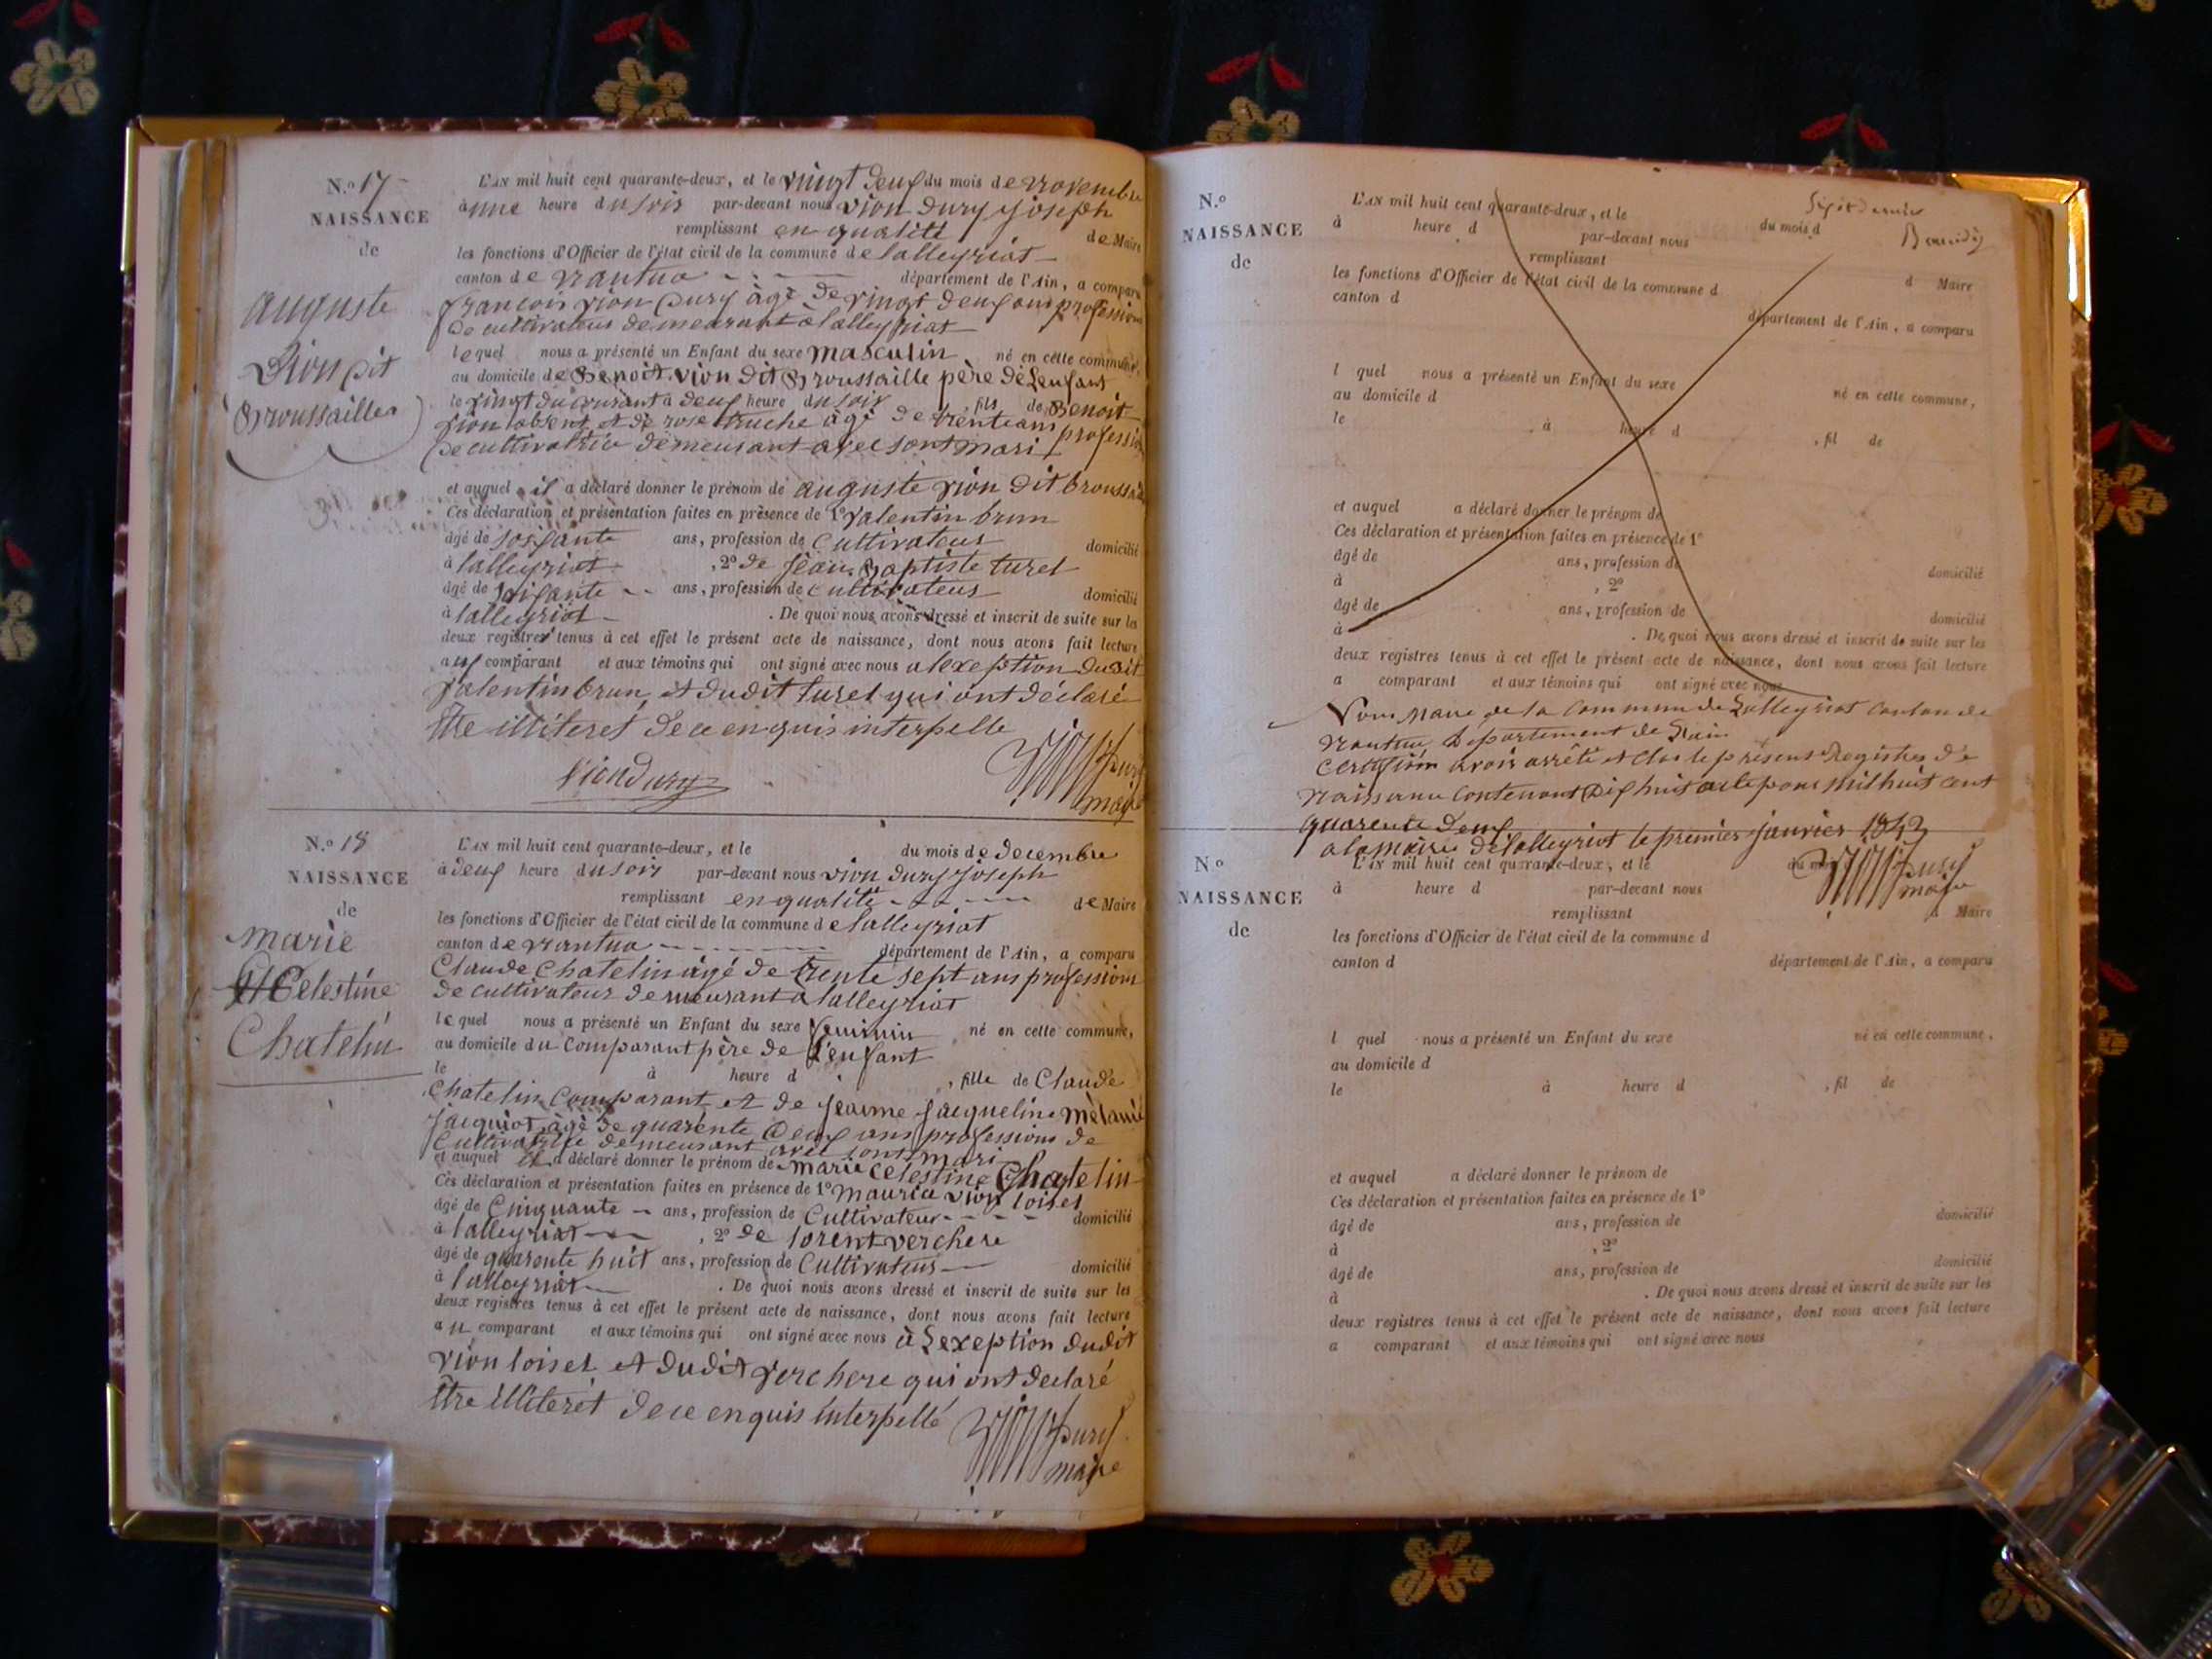 N.o 17
NAISSANCE
de
auguste
Vion dit
Broussailles
L'AN mil huit cent quarante-deux, et le vingt deux du mois de novembre
à une heure du soir par-devant nous vion dury joseph
remplissant en qualité de Maire
les fonctions d'Officier de l'état civil de la commune de lalleyriat
canton de nantua département de l'Ain, a comparu
francois vion Dury àgé de vingt deux ans profession
de cultivateur demeurant à lalleyriat
lequel nous a présenté un Enfant du sexe masculin né en cette commune,
au domicile de Benoit vion dit Broussaille père de Lenfant
le vingt du courant à deux heure du soir fils de Benoit
vion absent et de rose truche àgé de trente ans profession
de cultivatrice demeurant avec sont mari
et auquel il a déclaré donner le prénom de auguste vion dit broussaille
Ces déclaration et présentation faites en présence de 1o valentin brun
âgé de soixante ans, profession de Cultivateur domicilié
à lalleyriat , 2o de jean Baptiste turel
âgé de soixante ans, profession de cultivateur domicilié
à lalleyriat . De quoi nous avons dressé et inscrit de suite sur les
deux registres tenus à cet effet le présent acte de naissance, dont nous avons fait lecture
aux comparant et aux témoins qui ont signé avec nous a lexeption dudit
valentin brun et dudit turel qui ont déclaré
être illiteret de ce enquis interpelle
Viondury
Vion Dury
maire
N.o 18
NAISSANCE
de
marie
Celestine
Chatelin
L'AN mil huit cent quarante-deux, et le du mois de decembre
à deux heure du soir par-devant nous vion dury joseph
remplissant en qualité de Maire
les fonctions d'Officier de l'état civil de la commune de lalleyriat
canton de nantua département de l'Ain, a comparu
Claude Chatelin àgé de trente sept ans profession
de cultivateur demeurant a lalleyriat
lequel nous a présenté un Enfant du sexe feminin né en cette commune,
au domicile du comparant père de l'enfant
le à heure d , fille de Claude
Chatelin Comparant et de jeanne jacqueline mélanie
jacquiot àgé de quarente deux ans profession de
Cultivatrice demeurant avec sont mari
et auquel il a déclaré donner le prénom de marie celestine Chatelin
Ces déclaration et présentation faites en présence de 1o maurice vion loiset
âgé de Cinquante ans, profession de Cultivateur domicilié
à lalleyriat , 2o de lorent verchere
âgé de quarente huit ans, profession de Cultivateur domicilié
à lalleyriat . De quoi nous avons dressé et inscrit de suite sur les
deux registres tenus à cet effet le présent acte de naissance, dont nous avons fait lecture
au comparant et aux témoins qui ont signé avec nous à Lexeption dudit
vion loiset et dudit verchere qui ont declaré
être illiterét de ce enquis interpellé
Vion Dury
maire
N.o
NAISSANCE
de
L'AN mil huit cent quarante-deux, et le du mois d
à heure d par-devant nous
remplissant d Maire
les fonctions d'Officier de l'état civil de la commune d
canton d département de l'Ain, a comparu
l quel nous a présenté un Enfant du sexe né en cette commune,
au domicile d
le à heure d , fil de
et auquel a déclaré donner le prénom de
Ces déclaration et présentation faites en présence de 1o
âgé de ans, profession de domicilié
à , 2o
âgé de ans, profession de domicilié
à . De quoi nous avons dressé et inscrit de suite sur les
deux registres tenus à cet effet le présent acte de naissance, dont nous avons fait lecture
a comparant et aux témoins qui ont signé avec nous
Nous Maire de la Commune de Lalleyriat canton de
nantua Département de Lain
certifion avoir arrêté et clos le présent Registre de
naissance contenant Dix huit acte pour mil huit cent
quarente deux
a la mairie de lalleyriat le premier janvier 1843
Vion Dury
maire
N.o
NAISSANCE
de
L'AN mil huit cent quarante-deux, et le du mois
à heure d par-devant nous
remplissant d Maire
les fonctions d'Officier de l'état civil de la commune d
canton d département de l'Ain, a comparu
l quel nous a présenté un Enfant du sexe né en cette commune,
au domicile d
le à heure d , fil de
et auquel a déclaré donner le prénom de
Ces déclaration et présentation faites en présence de 1o
âgé de ans, profession de domicilié
à , 2o
âgé de ans, profession de domicilié
à . De quoi nous avons dressé et inscrit de suite sur les
deux registres tenus à cet effet le présent acte de naissance, dont nous avons fait lecture
a comparant et aux témoins qui ont signé avec nous